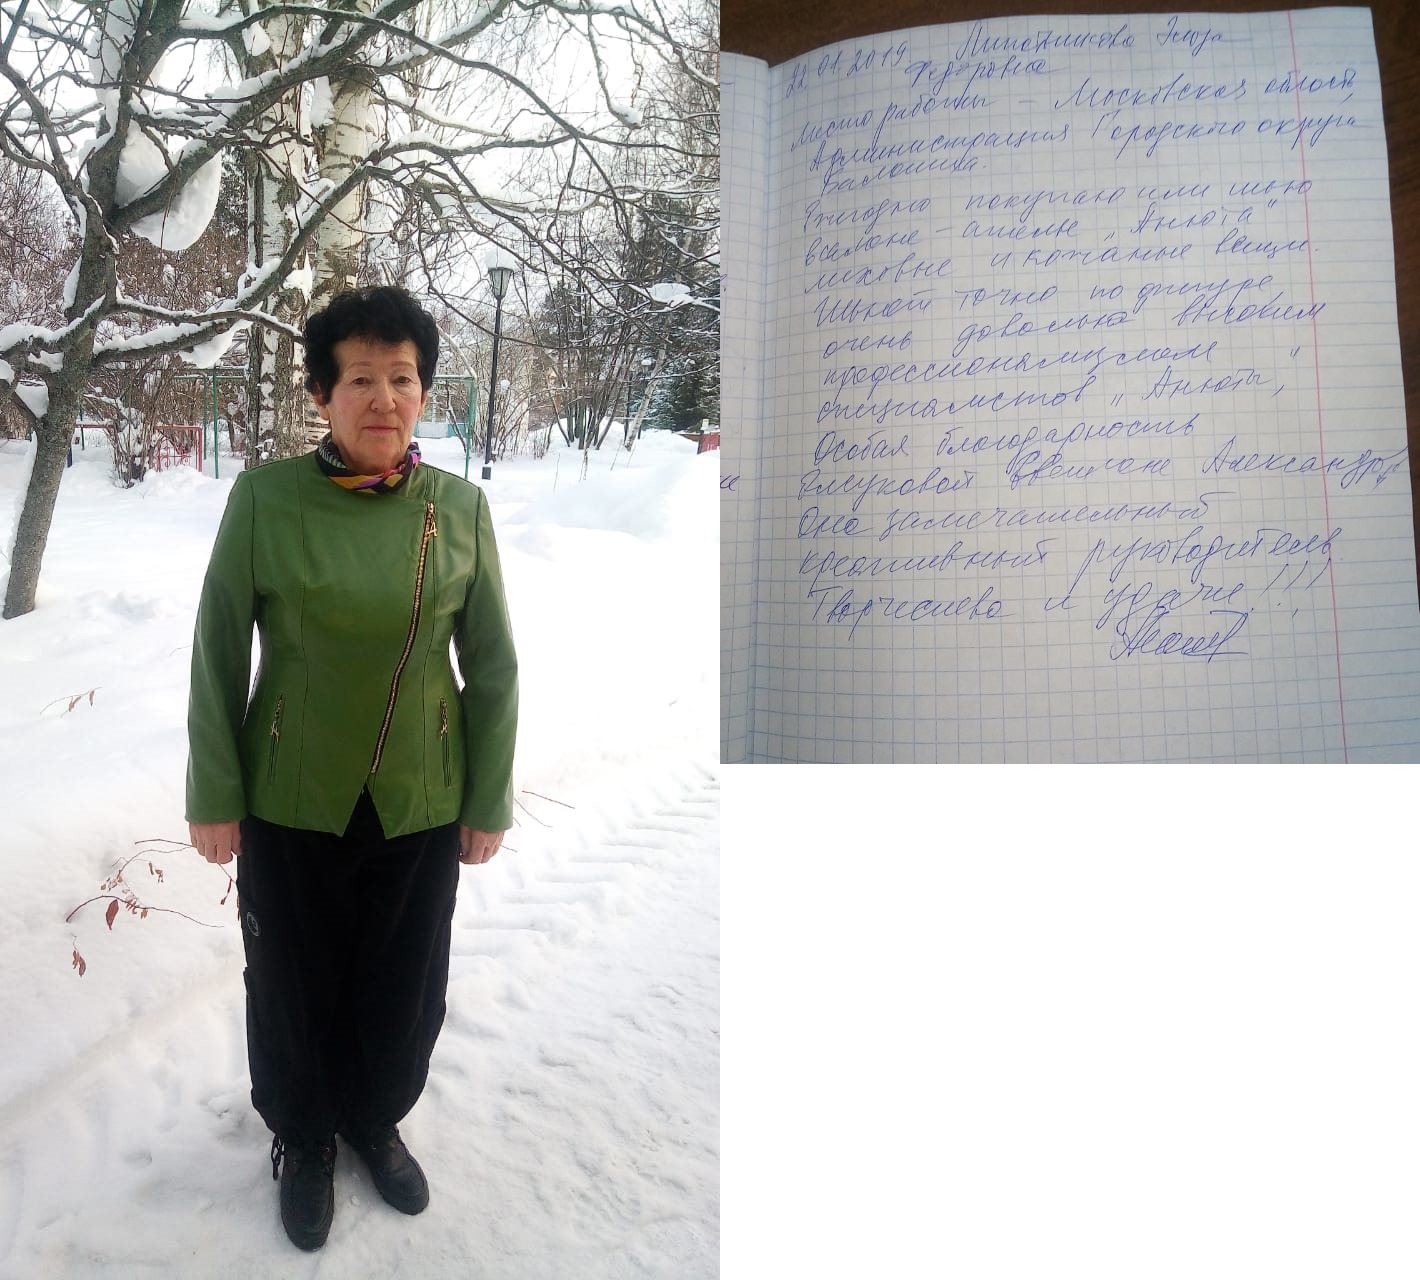 22.01.2019 Липатникова Элоза
Федоровна
Место работы - Московская область,
Администрация Городского округа
Балашиха.
Ежегодно покупаю или шью
в салоне-ателье "Анюта"
меховые и кожаные вещи.
Шьют точно по фигуре,
очень довольна высоким
профессионализмом
специалистов "Анюты",
Особая благодарность
Светлане Александр.
Она замечательный
креативный руководитель.
Творческого и удачи!!!